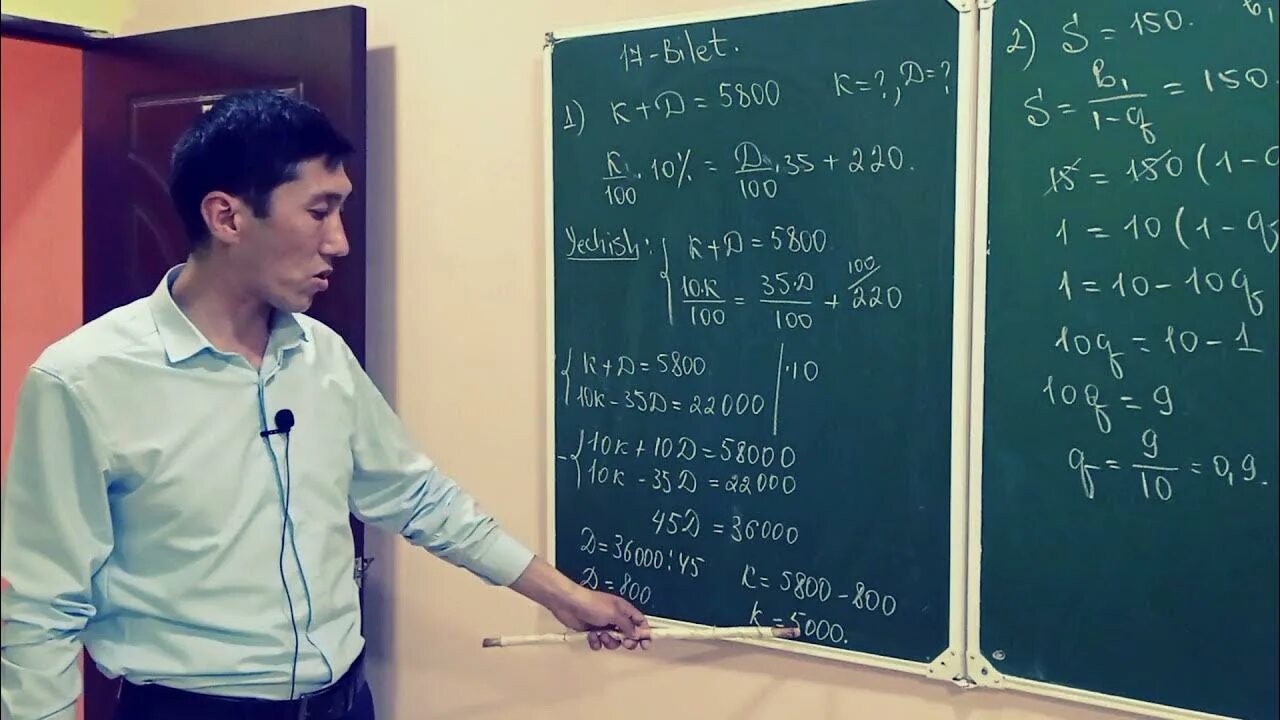 17-Bilet.
1) K+D=5800 K=?, D=?
K/100 · 10% = D/100 · 35 + 220.
Yechish: K+D=5800
10·K/100 = 35·D/100 + 220 100/
K+D=5800 | ·10
10K-35D=22000
- 10K+10D=58000
10K-35D=22000
45D=36000
D=36000:45
D=800.
K=5800-800
K=5000.
2) S=150. b₁
S = b₁/1-q = 150
15 = 150(1-
1=10(1-q
1=10-10q
10q=10-1
10q=9
q = 9/10 = 0,9.